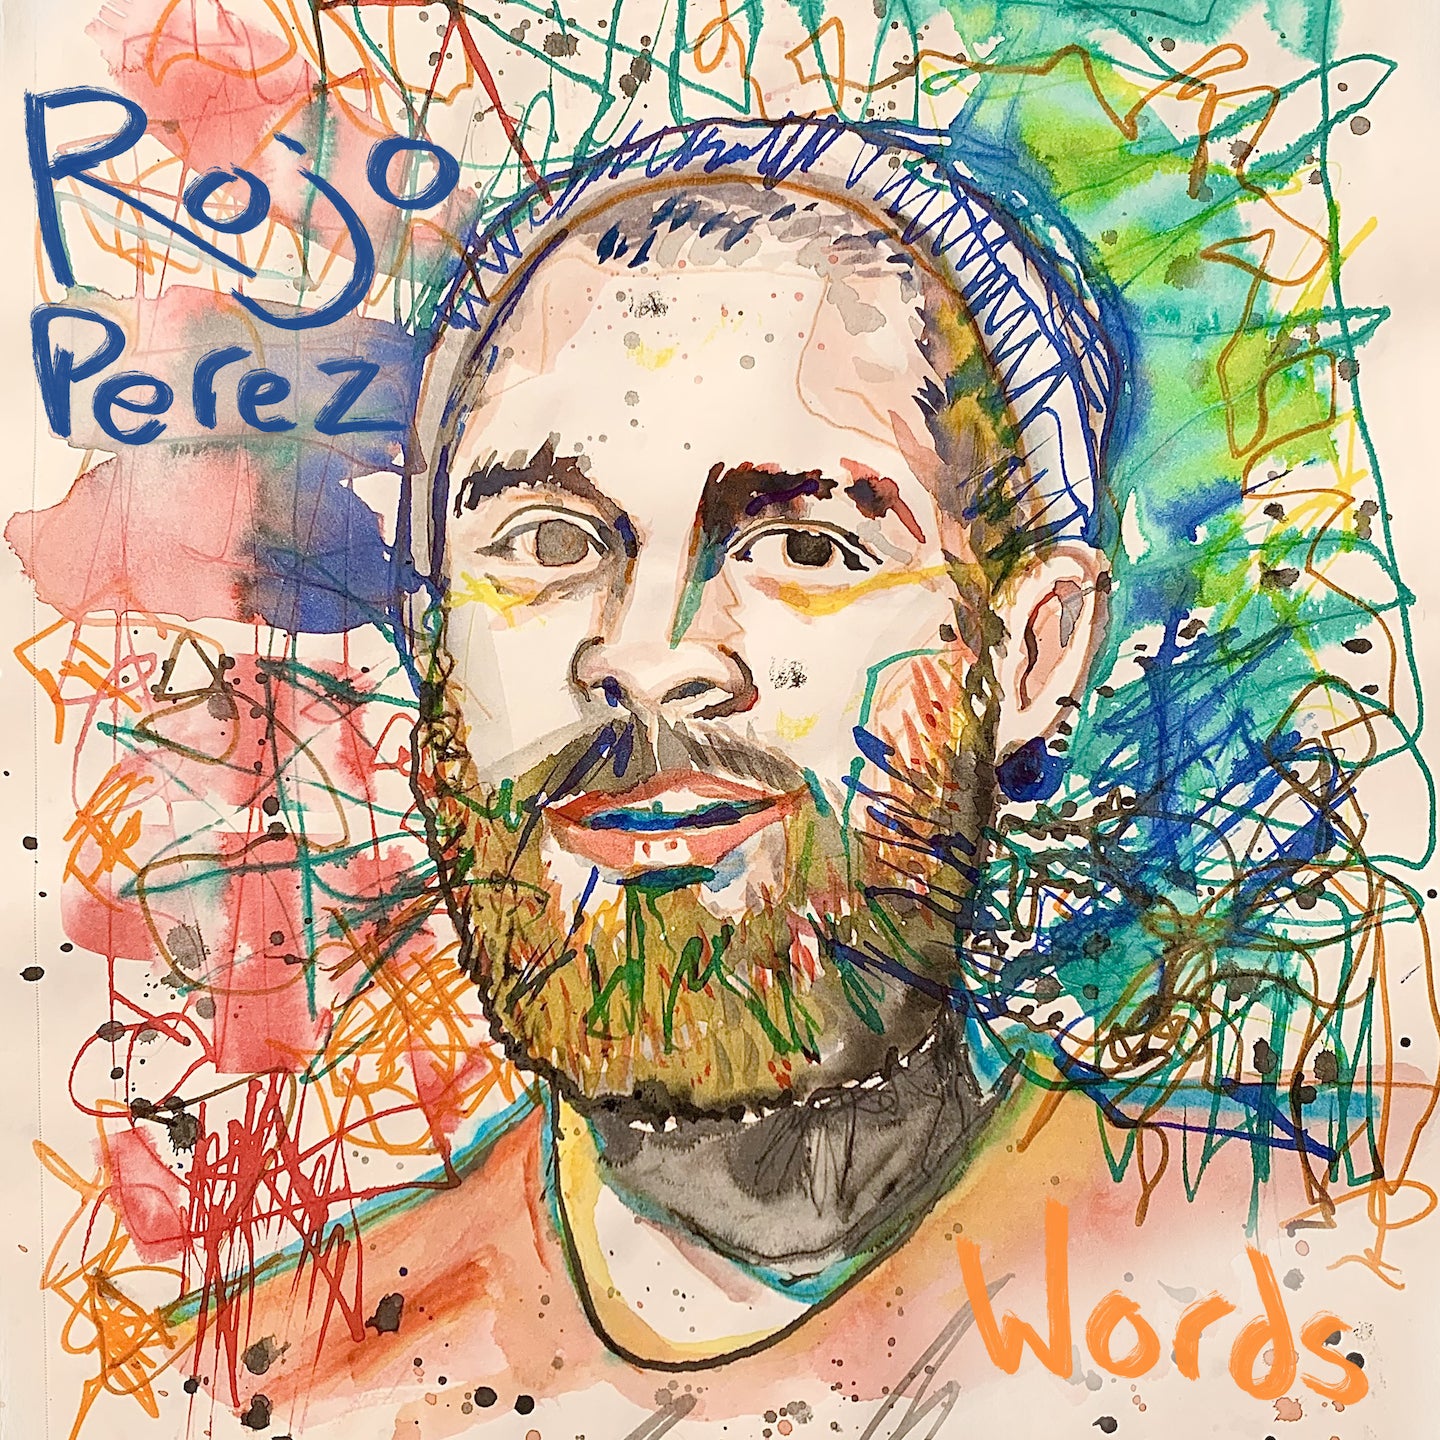 Rojo
Perez
Words